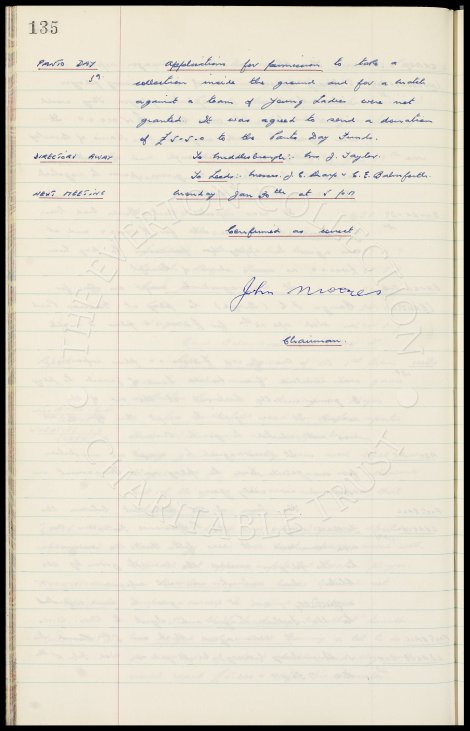 135
PANTO DAY Applications for permission to take a
collection inside the ground and for a match
against a team of Young Ladies were not
granted. It was agreed to send a donation
of £5-5-0 to the Panto Day Funds.
DIRECTORS AWAY To Middlesbrough:- Mr J. Taylor.
To Leeds:- Messrs. J.C. Sharp & C.E. Balmforth.
NEXT MEETING Monday Jan 30th at 5 pm
Confirmed as correct
John Moores
Chairman.
THE EVERTON COLLECTION
CHARITABLE TRUST